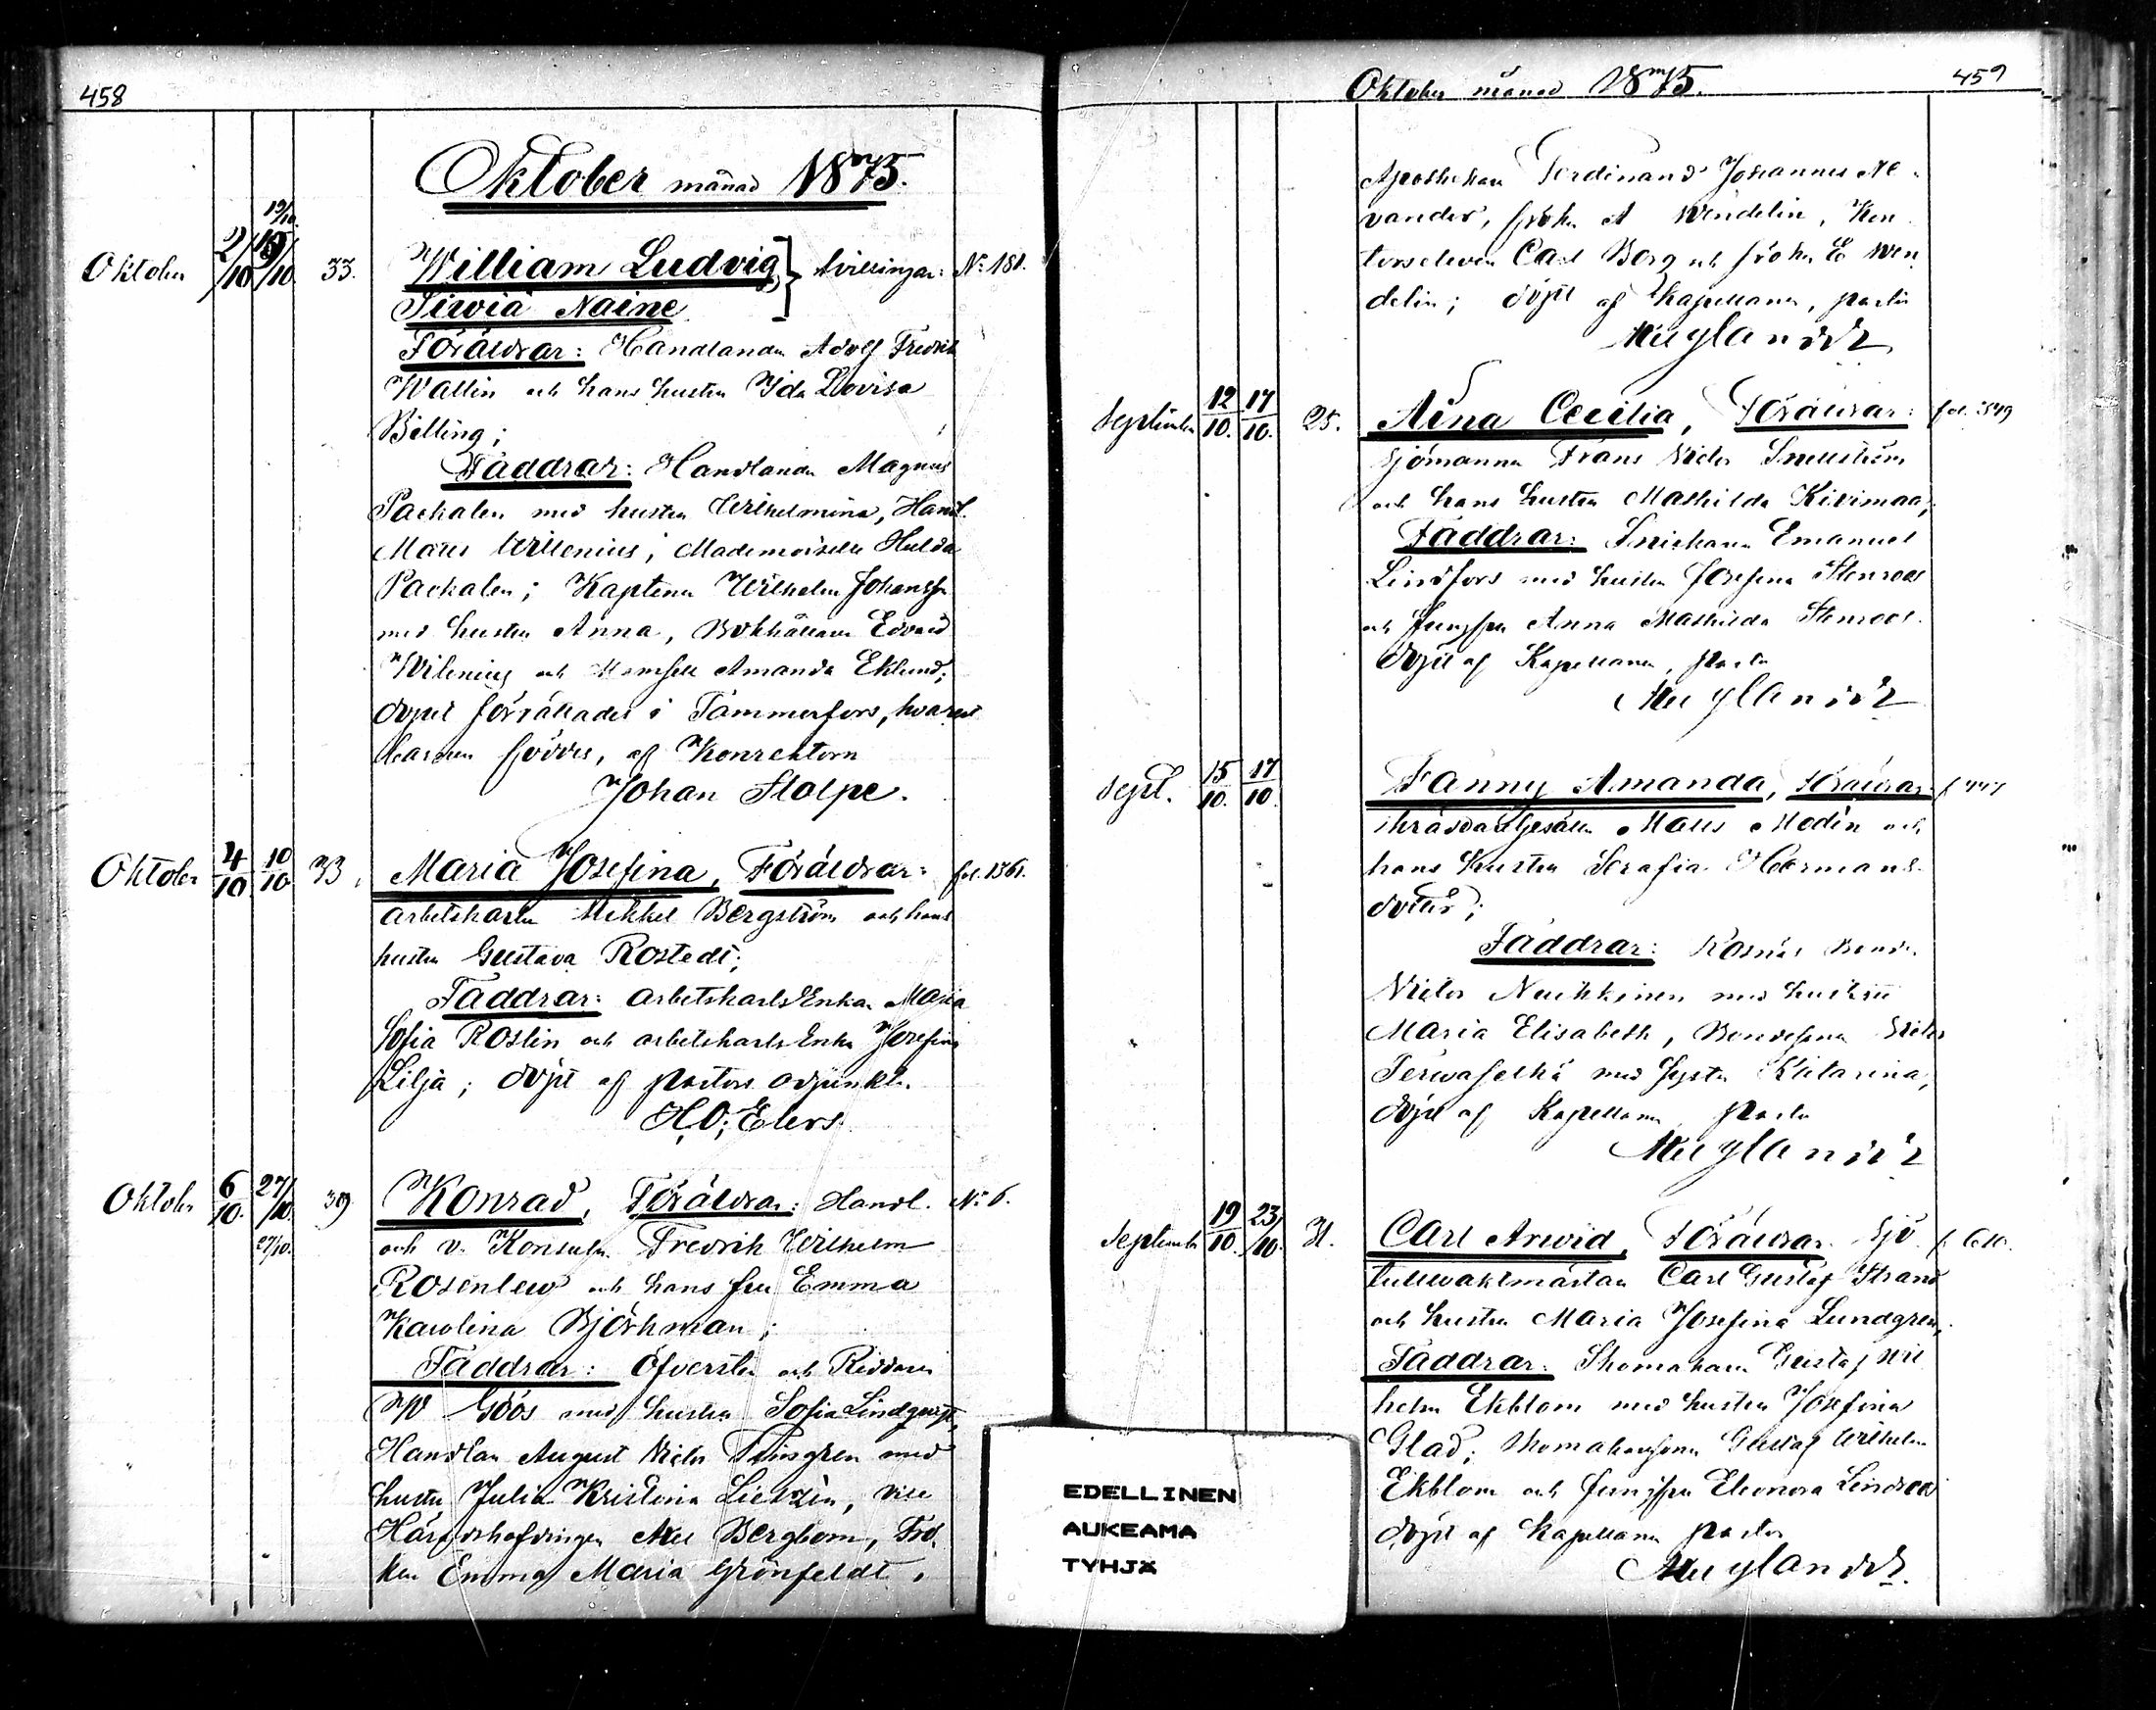 458
Oktober månad 1875.
19/10.
Oktober 2/10 19/10. 33. William Ludvig } tvillingar: No: 181.
Sirvia Naine
Föräldrar: Handlanden Adolf Fredrik
Wallin och hans hustru Ida Lovisa
Billing;
Faddrar: Handlanden Magnus
Packalen med hustru Wilhelmina, Handl.
Matts Willenius; Mademoiselle Hulda
Packalen; Kaptenen Wilhelm Johansson
med hustru Anna, Bokhållaren Edvard
Wilenius och Mamsell Amanda Eklund;
dopet förrättades i Tammerfors, hvarest
barnen föddes, af Konrektorn
Johan Stolpe.
Oktober 4/10 10/10 33. Maria Josefina, Föräldrar: fol. 1361.
arbetskarlen Mikkel Bergström och hans
hustru Gustava Rostedt;
Faddrar: arbetskarls Enkan Maria
Sofia Roslin och arbetskarls Enkan Josefina
Lilja; döpt af pastors adjunkten
H. O. Elers.
Oktober 6/10. 27/10. 39 Konrad, Föräldrar: Handl. No: 6.
27/10.
och v. Konsuln Fredrik Wilhelm
Rosenlew och hans fru Emma
Karolina Björkman;
Faddrar: Öfversten och Riddaren
W Göös med hustru Sofia Lindqvist,
Handlan August Victor Timgren med
hustru Julia Kristina Lietzén, Vice
Häradshöfdingen Axel Bergbom, Frö-
ken Emma Maria Grönfeldt,
Oktober månad 1875. 459
Apothekaren Ferdinand Johannes Ne-
vander, fröken A Wendelin, Kon-
torseleven Carl Borg och fröken E Wen-
delin; döpt af Kapellanen, pastor
Myglander
September 12/10. 17/10. 25. Aina Cecilia, Föräldrar: fol. 549
Sjömannen Frans Victor Snellström
och hans hustru Mathilda Kivimaa;
Faddrar: Snickaren Emanuel
Lindfors med hustru Josefina Stenroos
och Jungfru Anna Mathilda Stenroos.
döpt af Kapellanen, pastor
Myglander
Sept. 15/10. 17/10. Fanny Amanda, Föräldrar: f 447
skräddaregesällen Matts Modin och
hans hustru Serafia Hermans-
dotter;
Faddrar: Rosnäs Bonde
Victor Neukkinen med hustru
Maria Elisabeth, Bondesonen Victor
Terwaselkä med syster Katarina,
döpt af Kapellanen pastor
Myglander
September 19/10. 23/10. 31. Carl Arwid, Föräldrar Sjö-
tullvaktmästaren Carl Gustaf Strand
och hustru Maria Josefina Lundgren,
Faddrar: Skomakaren Gustaf Wil-
helm Ekblom med hustru Josefina
Glad; skomakaresonen Gustaf Wilhelm
Ekblom och Jungfru Eleonora Lindroos
döpt af Kapellanen pastor
Myglander.
EDELLINEN
AUKEAMA
TYHJÄ